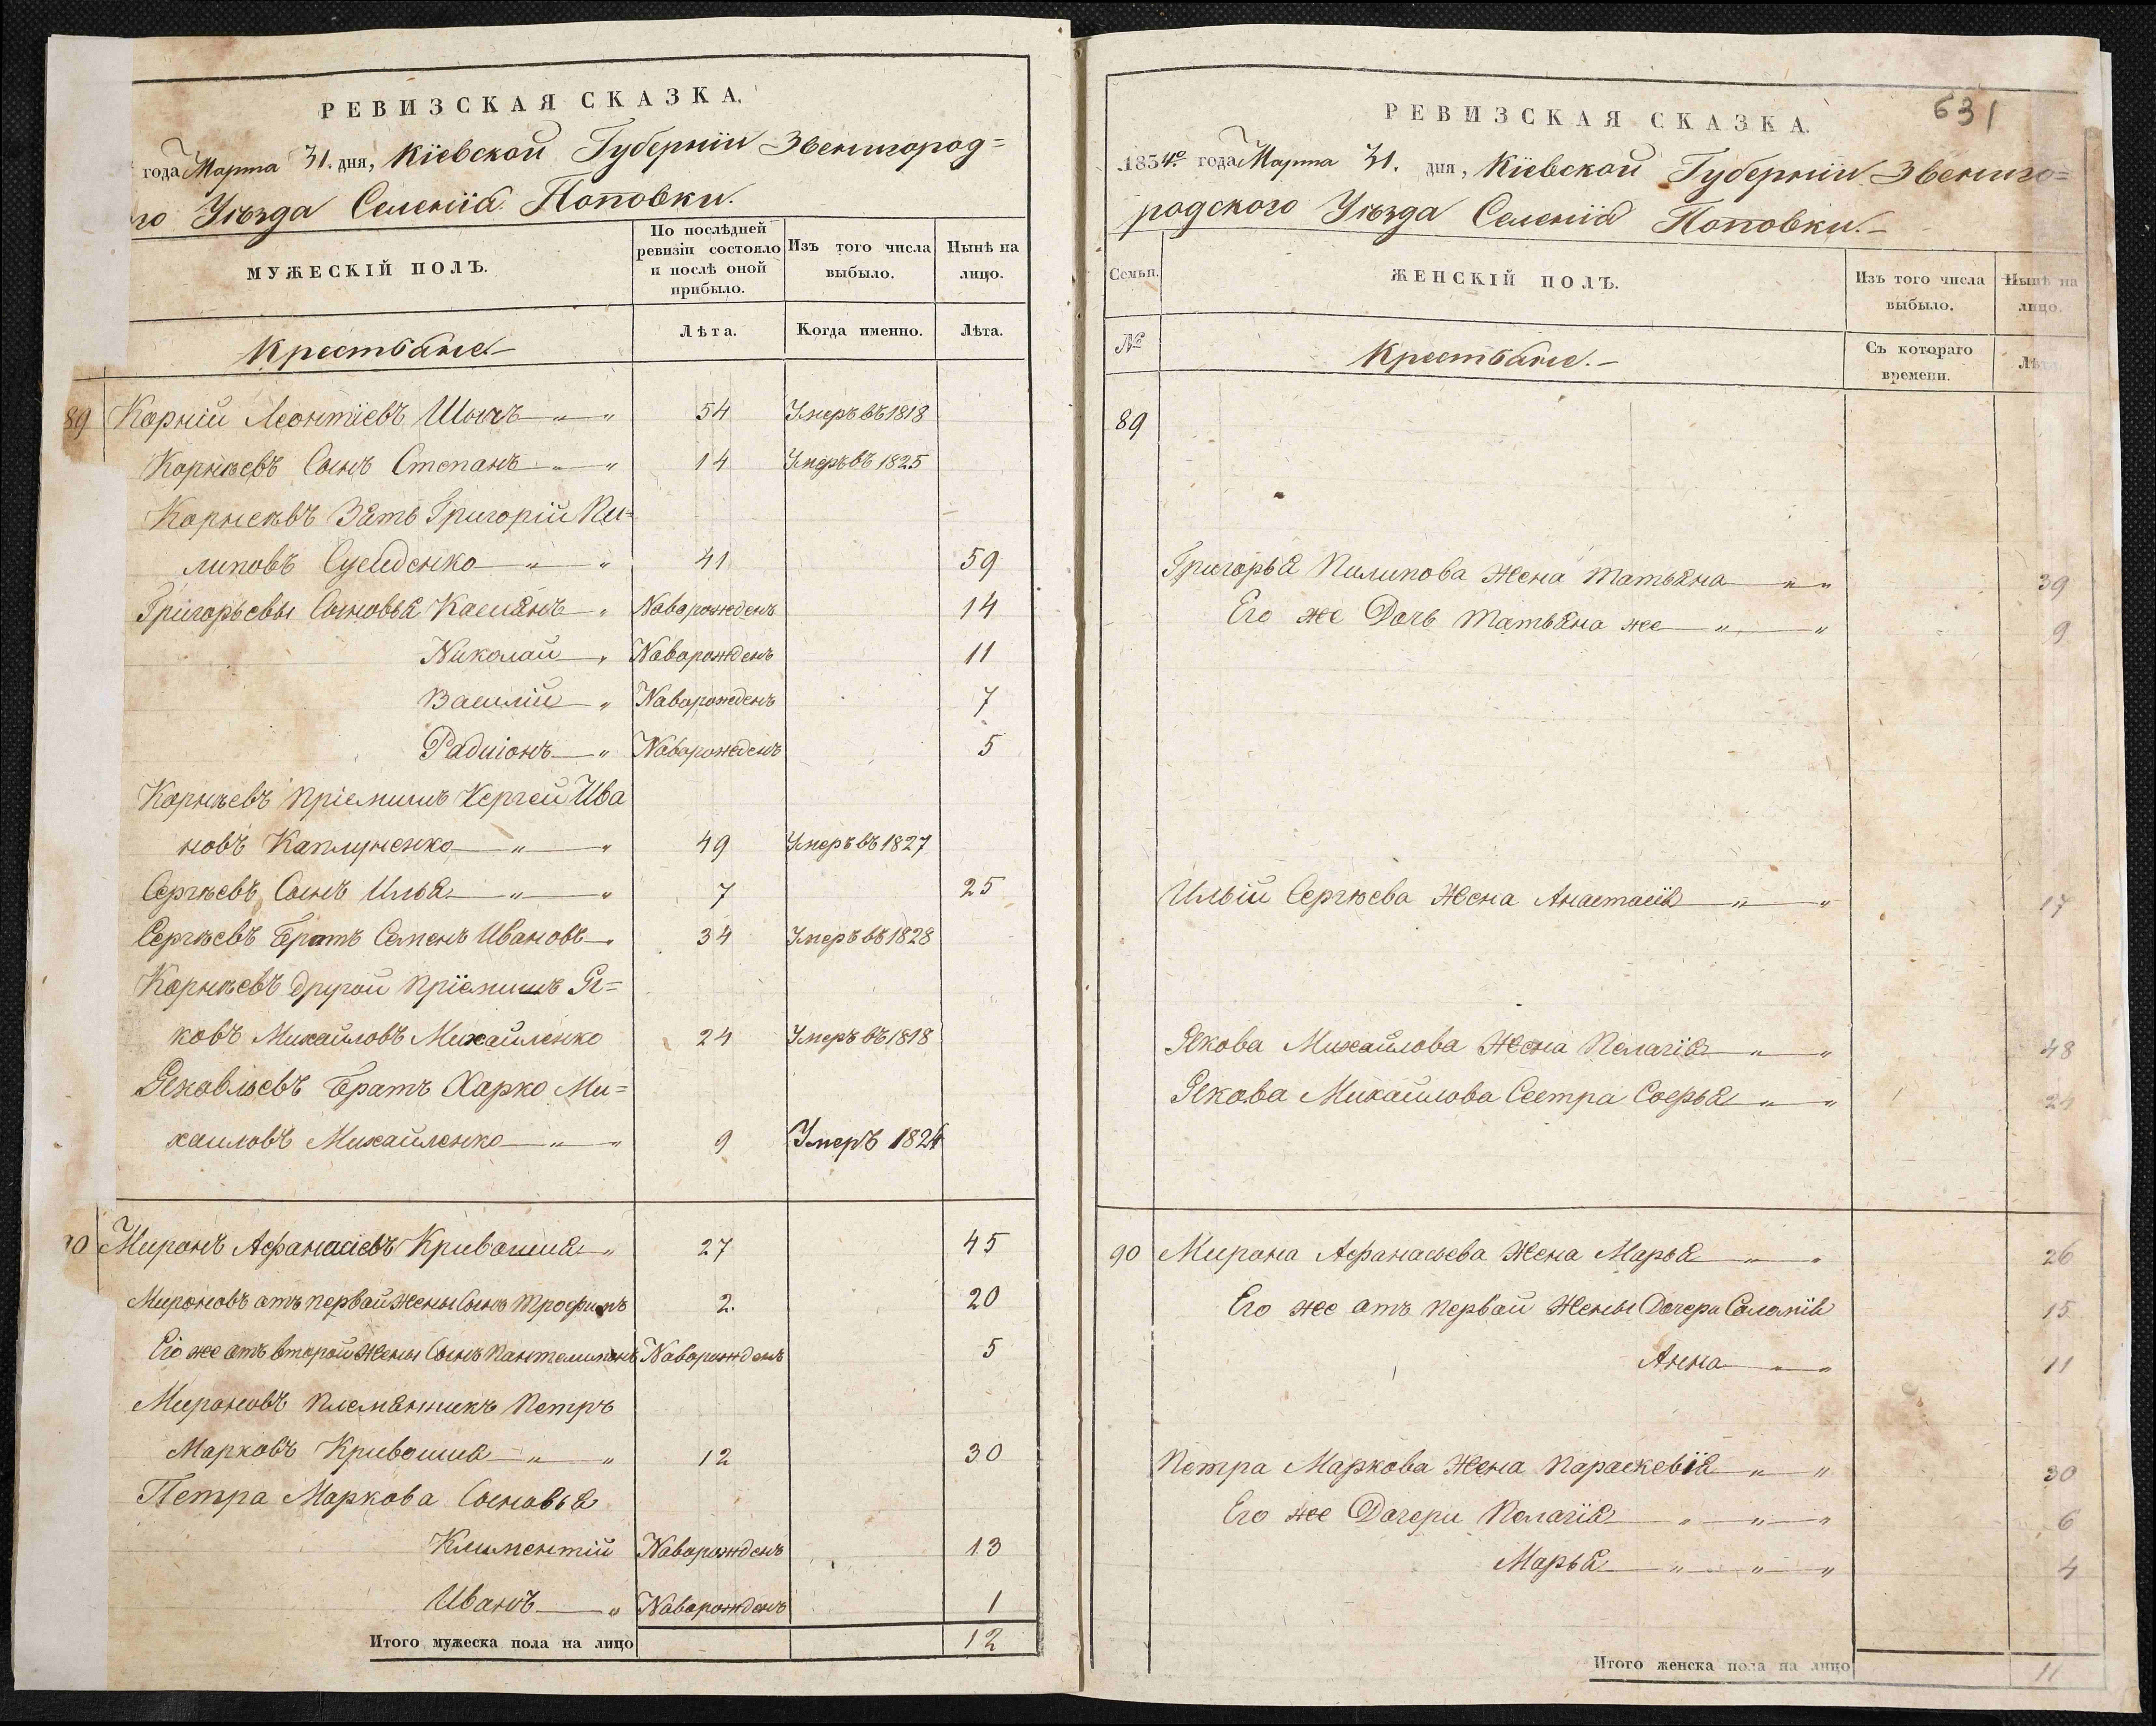 РЕВИЗСКАЯ СКАЗКА.
года Марта 31. дня, Кіевской Губерніи Звенигород=
го Уѣзда Селенія Поповки.
МУЖЕСКІЙ ПОЛЪ.
По послѣдней ревизіи состояло и послѣ оной прибыло.
Изъ того числа выбыло.
Нынѣ на лицо.
Крестьяне
Лѣта.
Когда именно.
Лѣта.
89 Корній Леонтіевъ 54 Умеръ въ 1818
Корнѣевъ Сынъ Степанъ 14 Умеръ въ 1825
Корнеевъ Зять Григорій Пи=
липовъ 41 59
Григорьевы Сыновья Касиянъ Наварожденъ 14
Николай Наварожденъ 11
Василій Наварожденъ 7
Радиіонъ Наварожденъ 5
Корнѣевъ Пріемишъ Сергей Ива
новъ Каплуненко 49 Умеръ въ 1827
Сергѣевъ Сынъ Илья 7 25
Сергѣевъ Братъ Семенъ Ивановъ 34 Умеръ въ 1828
Корнѣевъ другой Пріемишъ Я=
ковъ Михайловъ Михайленко 24 Умеръ въ 1818
Яковлевъ Братъ Харко Ми=
хаиловъ Михайленко 9 Умеръ 1824
90 Миронъ Афанасіевъ Кривошия 27 45
Мироновъ отъ первай жены Сынъ Трофимъ 2. 20
Его же отъ второй жены Сынъ Пантелимонъ Наварожденъ 5
Мироновъ Племянникъ Петръ
Марковъ Кривошия 12 30
Петра Маркова Сыновья
Климентій Наварожденъ 13
Иванъ Наварожденъ 1
Итого мужеска пола на лицо 12
631
РЕВИЗСКАЯ СКАЗКА.
1834го года Марта 31. дня, Кіевской Губерніи Звениго=
родского Уѣзда Селенія Поповки.
Семьи.
ЖЕНСКІЙ ПОЛЪ.
Изъ того числа выбыло.
Нынѣ на лицо.
№
Крестьяне.
Съ котораго времени.
Лѣта
89
Григорья Пилипова Жена Татьяна 39
Его же Дочь Татьяна же 9
Ильій Сергѣева Жена Анастасія 17
Якова Михайлова Жена Пелагія 48
Якова Михайлова Сестра Софья 24
90 Мирона Афанасьева Жена Марья 26
Его же отъ первай Жены Дочери Соломія 15
Анна 11
Петра Маркова Жена Параскевія 30
Его же Дочери Пелагія 6
Марья 4
Итого женска пола на лицо 11